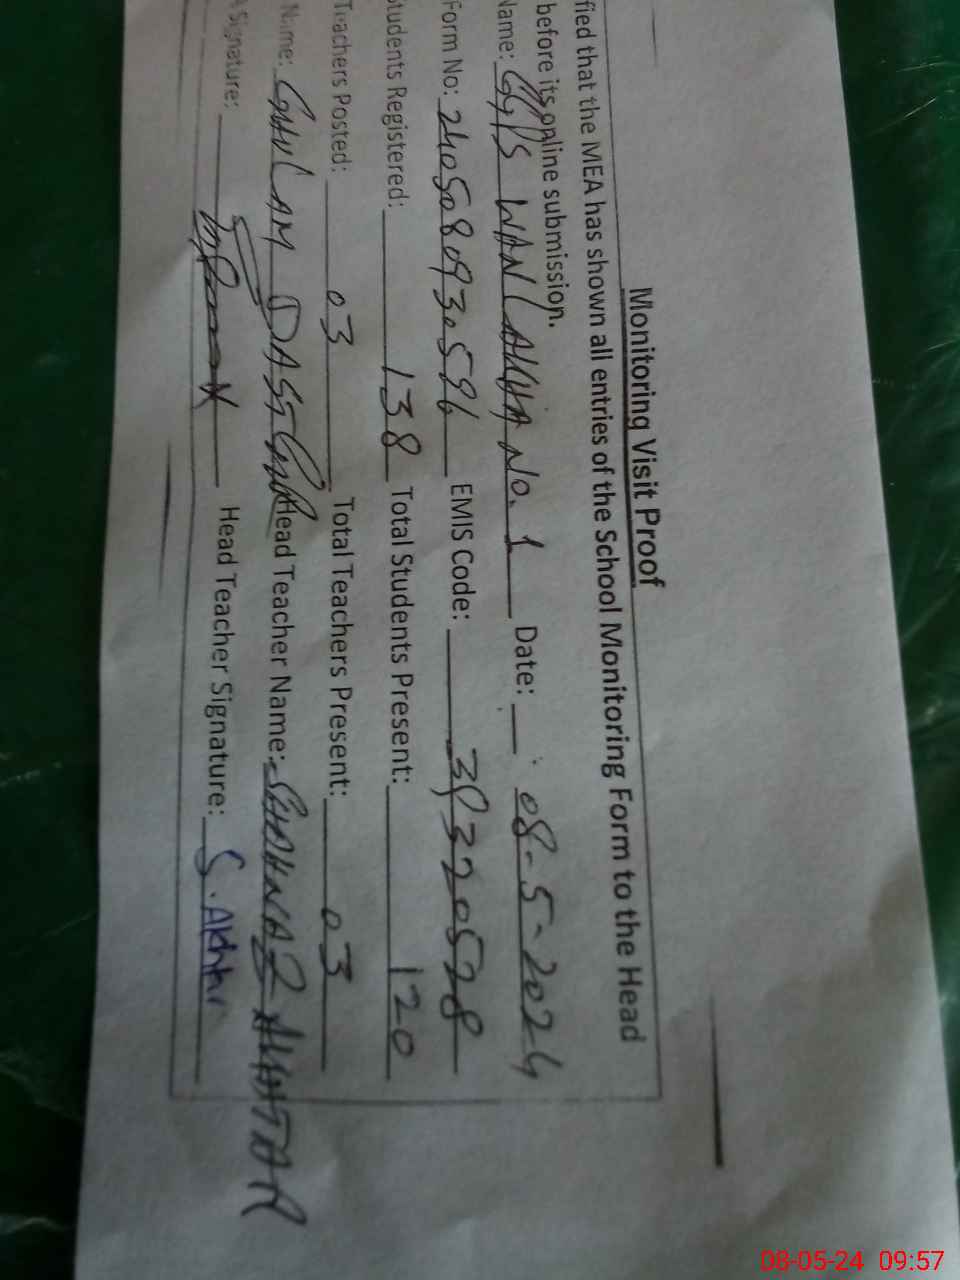 Monitoring Visit Proof
fied that the MEA has shown all entries of the School Monitoring Form to the Head
before its online submission.
Name: GGPS WANLAKHA No. 1 Date: 08-5-2024
Form No: 2405080930596 EMIS Code: 38320578
Students Registered: 138 Total Students Present: 120
Teachers Posted: 03 Total Teachers Present: 03
Name: GHULAM DASTGIR Head Teacher Name: SHAHNAZ AKHTAR
A Signature: Head Teacher Signature: S. Akhtar
08-05-24 09:57